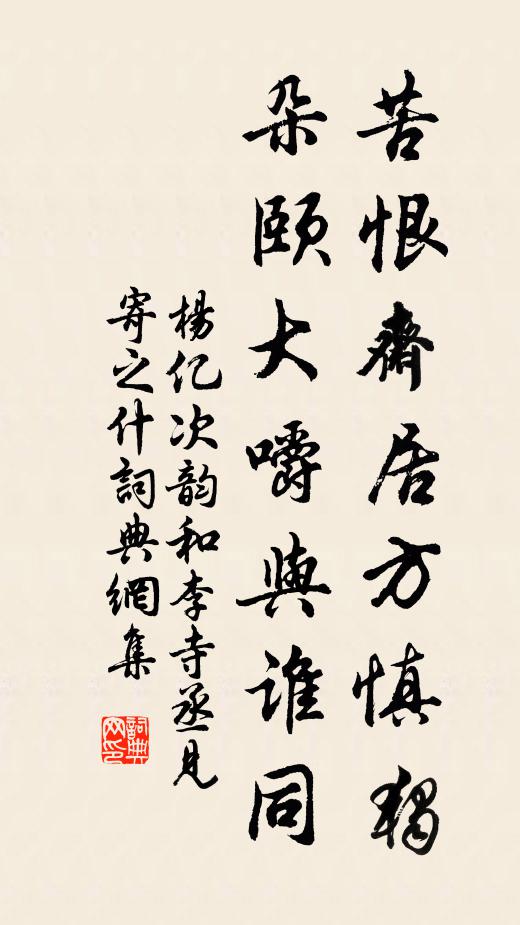 苦恨齋居方慎獨
朵頤大嚼與誰同
楊億次韵和李寺丞見
寄之什詞典網集
詞典网印